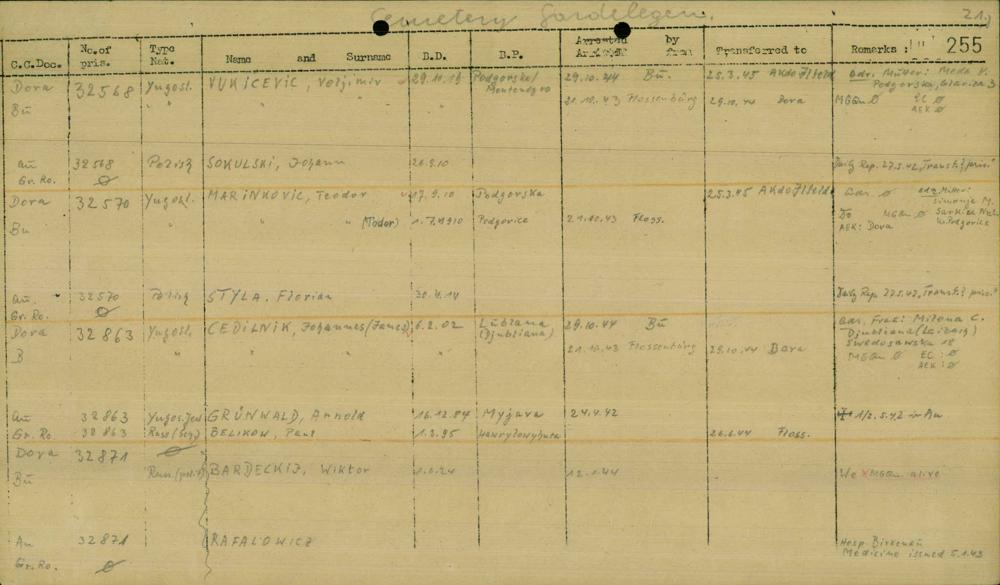 Cemetery Gardelegen.
21)
255
C.C.Doc. No.of pris. Type Nat. Name and Surname B.D. B.P. Arrested Arrived by from Transferred to Remarks :
Dora 32568 Yugosl. VUKICEVIC, Veljimir 29.11.19 Podgorska/ Montenegro 29.10.44 Bü. 25.3.45 AKdo Ilfeld Adr. Mutter: Meda V.
Podgorska, Glavica 3
Bü " " " 21.10.43 Flossenbürg 29.10.44 Dora MGQu Ø EC Ø
AEK Ø
Au 32568 Polish SOKULSKI, Johann 26.9.10 Daily Rep. 27.5.42, "Transf. f. pris."
Gr. Ro. Ø
Dora 32570 Yugosl. MARINKOVIC, Teodor 17.9.10 Podgorska 25.3.45 AKdo Ilfeld Adr. Ø
Bu " " " (Todor) 1.7.1910 Podgorica 21.10.43 Floss. MGQu Ø
AEK: Dora
Au. 32570 Polish STYLA, Florian 30.4.14 Daily Rep. 27.5.42, "Transf. f. pris."
Gr. Ro. Ø
Dora 32863 Yugosl. CEDILNIK, Johannes (Janes) 6.2.02 Lubiana (Djubliana) 29.10.44 Bü Adr. Frau: Milena C.
Djubliana (Laibach)
Swedosawska 18
B " " " " 21.10.43 Flossenbürg 29.10.44 Dora MGQu Ø EC: Ø
AEK: Ø
Au 32863 Yugos. Jew GRÜNWALD, Arnold 16.12.84 Myjava 24.4.42 1/2.5.42 in Au
Gr. Ro. 32863 BELIKOW, Paul 1.2.95 26.6.44 Floss.
Dora 32871 Ø
Bü BARDECKIJ, Wiktor 1.6.24 12.1.44 MGQu. alive
Au 32871 RAFALOWICZ Hosp. Birkenau
Medicine issued 5.1.43
Gr. Ro. Ø